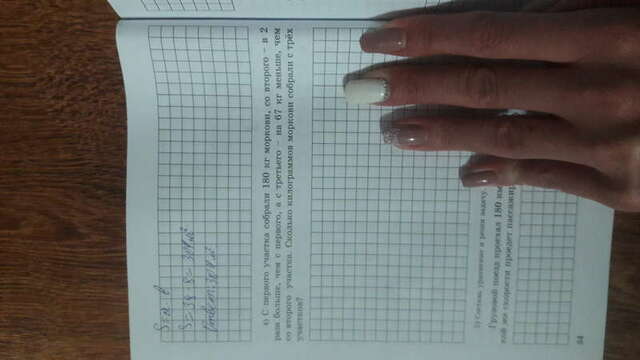 S=a·b
4) С первого участка собрали 180 кг моркови, со второго – в 2
раза больше, чем с первого, а с третьего – на 67 кг меньше, чем
со второго участка. Сколько килограммов моркови собрали с трёх
участков?
5) Составь уравнение и реши задачу.
Грузовой поезд проехал 180 км
той же скорости пройдет пассажир
84